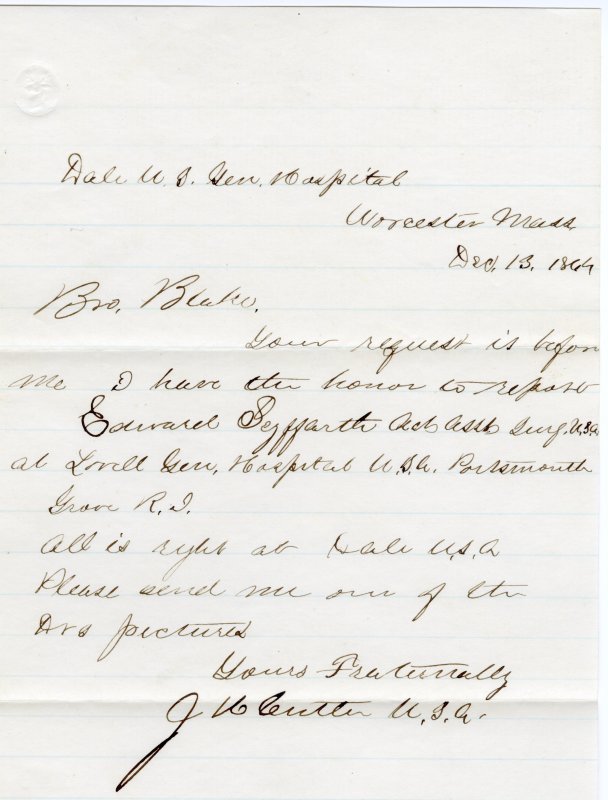 Dale U. S. Gen. Hospital
Worcester Mass
Dec. 13. 1864
Bro. Blake.
Your request is before
me I have the honor to report
Edward Seyffarth Act Asst Surg. U.S.A.
at Lovell Gen. Hospital U.S.A. Portsmouth
Grove R. I.
All is right at Dale U.S.A
Please send me one of the
Drs pictures
Yours Fraternally
J Cutler U.S.A.